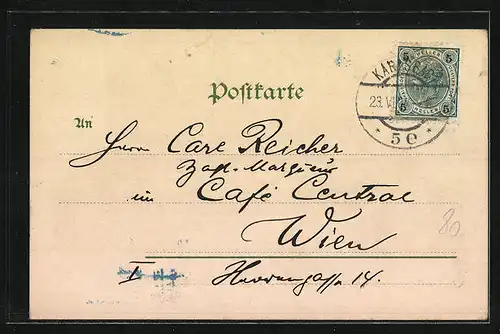 HELLER
5 5
5 5
HELLER
KAR
23. V
* 5 e *
Postkarte
An
Herrn Carl Reicher
Zahl-Marqueur
im Café Central
Wien
I Herrengasse 14.
80